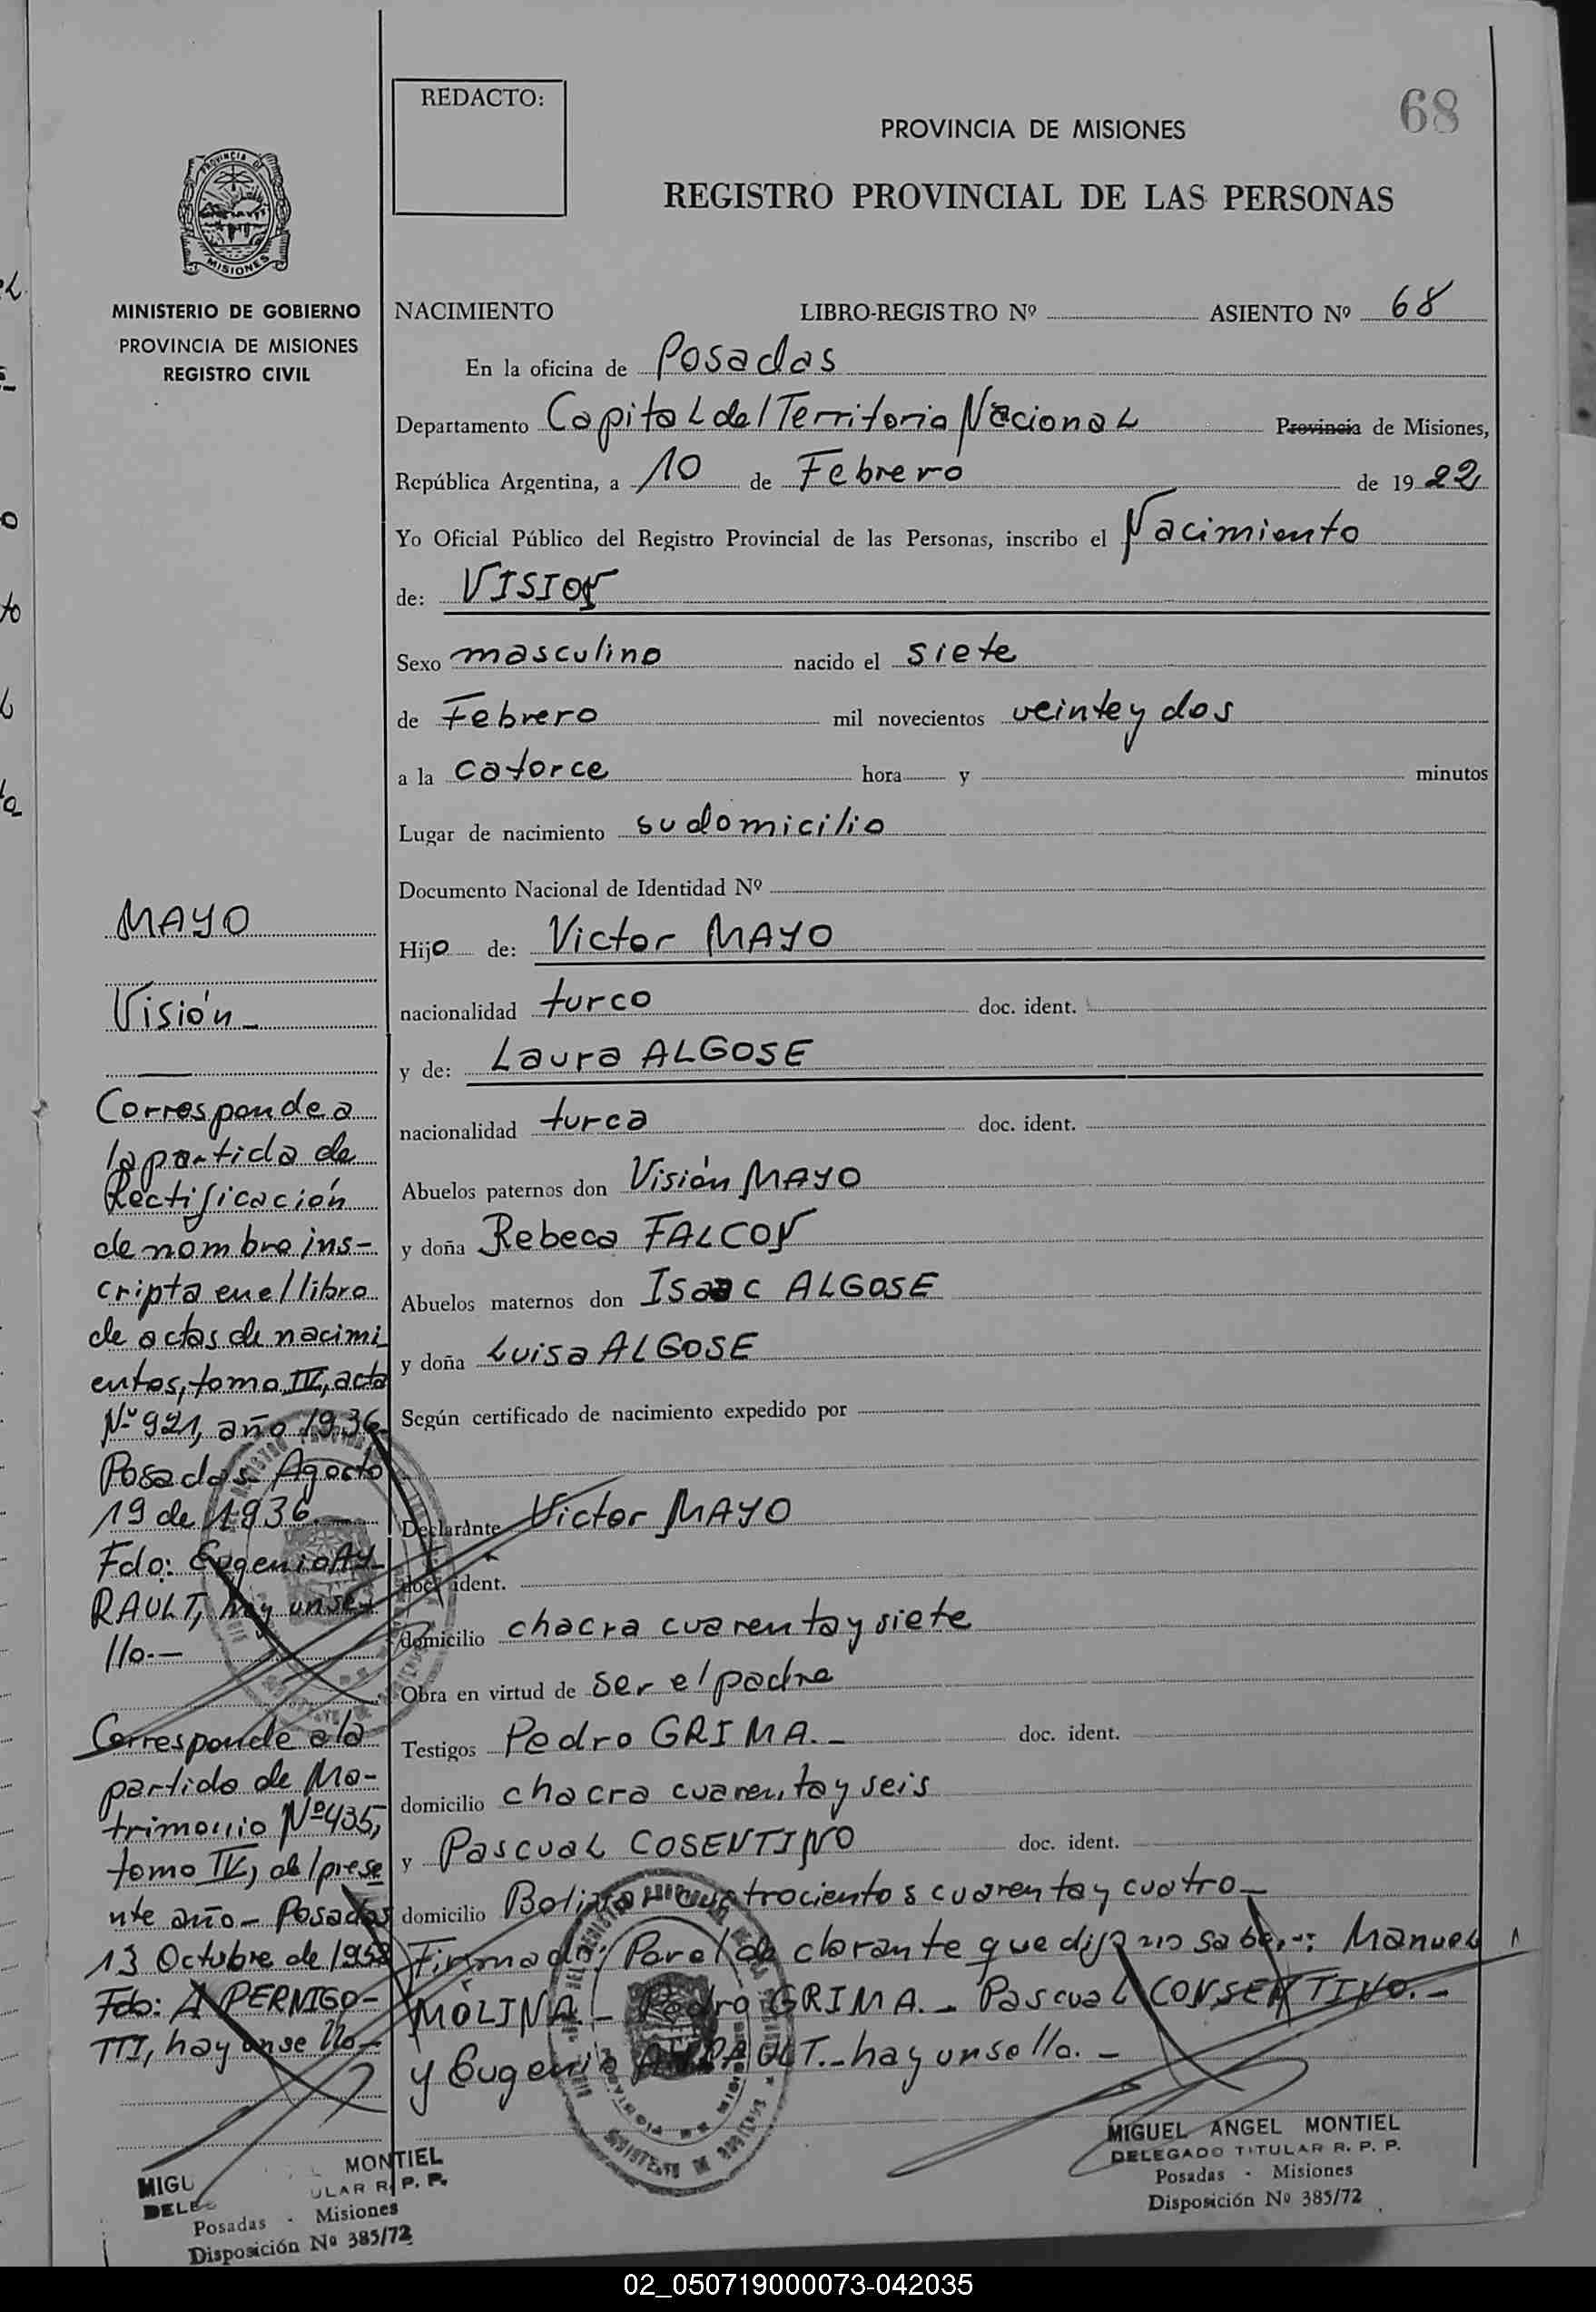 REDACTO:
68
PROVINCIA DE MISIONES
REGISTRO PROVINCIAL DE LAS PERSONAS
PROVINCIA DE
MISIONES
MINISTERIO DE GOBIERNO
PROVINCIA DE MISIONES
REGISTRO CIVIL
NACIMIENTO LIBRO-REGISTRO Nº ASIENTO Nº 68
En la oficina de Posadas
Departamento Capital del Territorio Nacional Provincia de Misiones,
República Argentina, a 10 de Febrero de 1922
Yo Oficial Público del Registro Provincial de las Personas, inscribo el Nacimiento
de: VISION
Sexo masculino nacido el siete
de Febrero mil novecientos veinte y dos
a la catorce hora y minutos
Lugar de nacimiento su domicilio
Documento Nacional de Identidad Nº
Hijo de: Victor MAYO
nacionalidad turco doc. ident.
y de: Laura ALGOSE
nacionalidad turca doc. ident.
Abuelos paternos don Visión MAYO
y doña Rebeca FALCON
Abuelos maternos don Isaac ALGOSE
y doña Luisa ALGOSE
Según certificado de nacimiento expedido por
Declarante Victor MAYO
doc. ident.
domicilio chacra cuarenta y siete
Obra en virtud de ser el padre
Testigos Pedro GRIMA.- doc. ident.
domicilio chacra cuarenta y seis
y Pascual COSENTINO doc. ident.
domicilio Bolivar cuatrocientos cuarenta y cuatro-
Firmado: Por el declarante que dijo no saber: Manuel
MOLINA.- Pedro GRIMA.- Pascual CONSENTINO.-
y Eugenio AYRAULT.- hay un sello.-
MIGUEL ANGEL MONTIEL
DELEGADO TITULAR R. P. P.
Posadas - Misiones
Disposición Nº 385/72
MAYO
Visión-
Corresponde a
la partida de
Rectificación
de nombre ins-
cripta en el libro
de actas de nacimi
entos, tomo IV, acta
Nº 921, año 1936
Posadas Agosto
19 de 1936.
Fdo: Eugenio AY-
RAULT, hay un se-
llo.-
Corresponde a la
partida de Ma-
trimonio Nº 435,
tomo IV, del prese
nte año- Posadas
13 Octubre de 1958
Fdo: A PERNIGO-
TTI, hay un sello-
MIGU MONTIEL
DELE ULAR R. P. P.
Posadas - Misiones
Disposición Nº 385/72
02_050719000073-042035